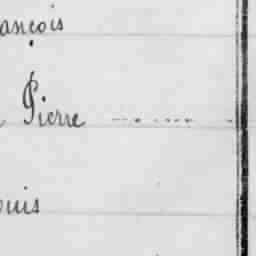 ançois
Pierre
ouis